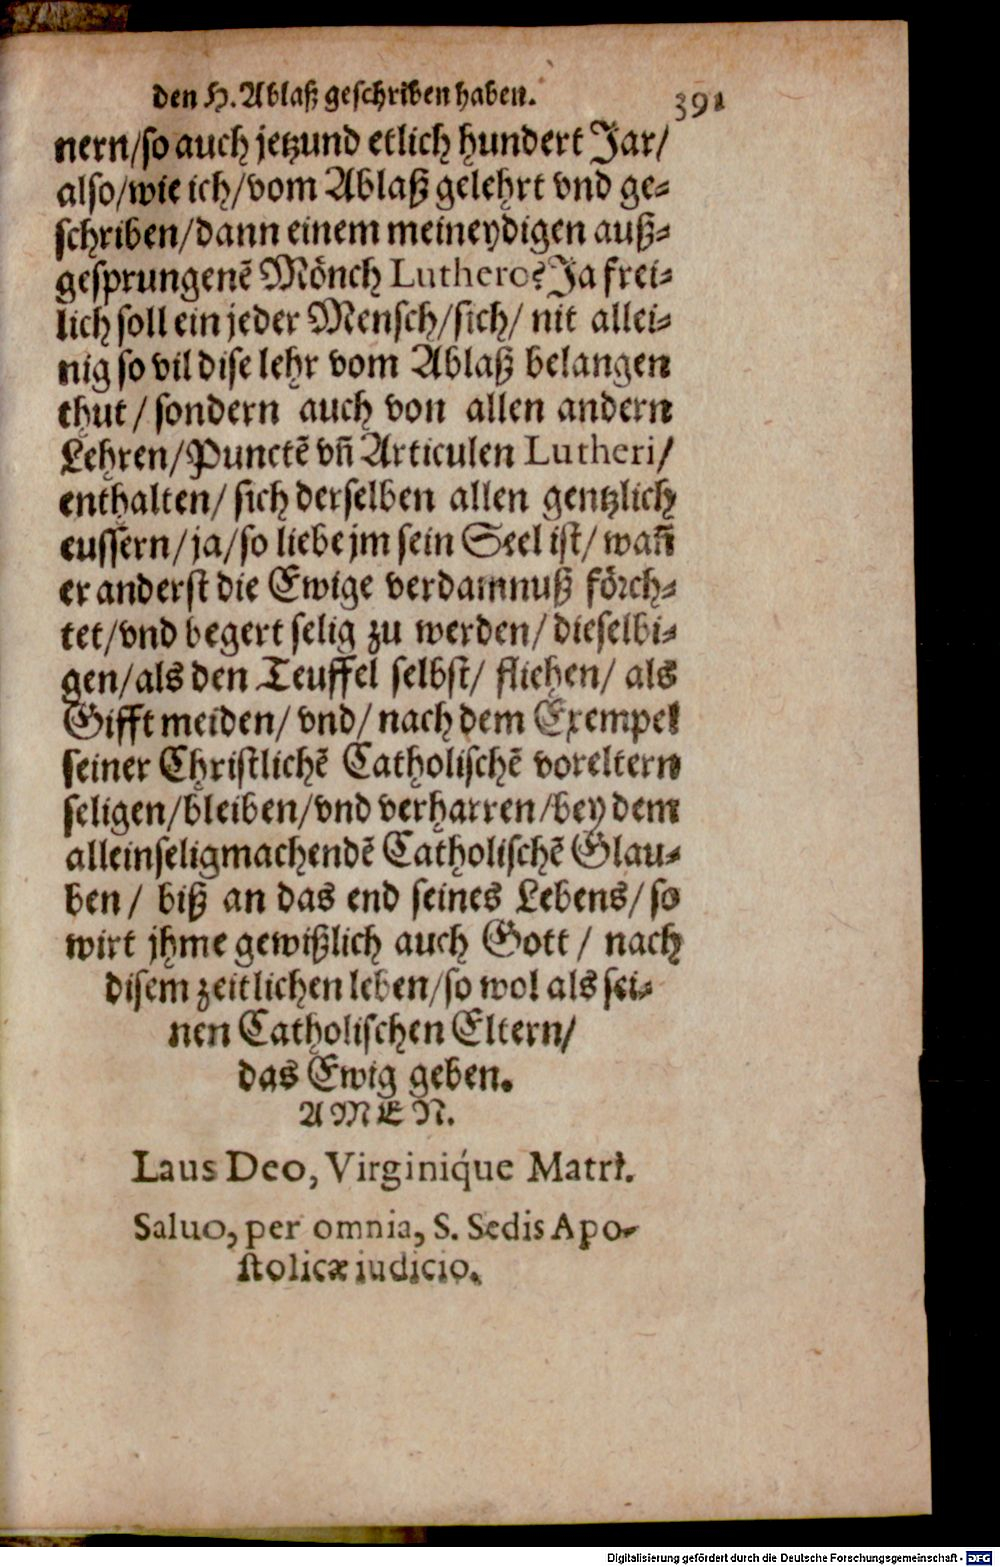 den H. Ablaß geschriben haben. 391
nern/so auch jetzund etlich hundert Jar/
also/wie ich/vom Ablaß gelehrt vnd ge-
schriben/dann einem meineydigen auß-
gesprungenẽ Mönch Luthero? Ja frei-
lich soll ein jeder Mensch/sich/ nit allei-
nig so vil dise lehr vom Ablaß belangen
thut/ sondern auch von allen andern
Lehren/Punctẽ vñ Articulen Lutheri/
enthalten/ sich derselben allen gentzlich
eussern/ja/so liebe jm sein Seel ist/ wañ
er anderst die Ewige verdamnuß förch-
tet/vnd begert selig zu werden/ dieselbi-
gen/als den Teuffel selbst/ fliehen/ als
Gifft meiden/ vnd/ nach dem Exempel
seiner Christlichẽ Catholischẽ voreltern
seligen/bleiben/vnd verharren/bey dem
alleinseligmachendẽ Catholischẽ Glau-
ben/ biß an das end seines Lebens/ so
wirt jhme gewißlich auch Gott/ nach
disem zeitlichen leben/so wol als sei-
nen Catholischen Eltern/
das Ewig geben.
AMEN.
Laus Deo, Virginiq́ue Matri.
Saluo, per omnia, S. Sedis Apo-
stolicæ iudicio.
Digitalisierung gefördert durch die Deutsche Forschungsgemeinschaft - DFG